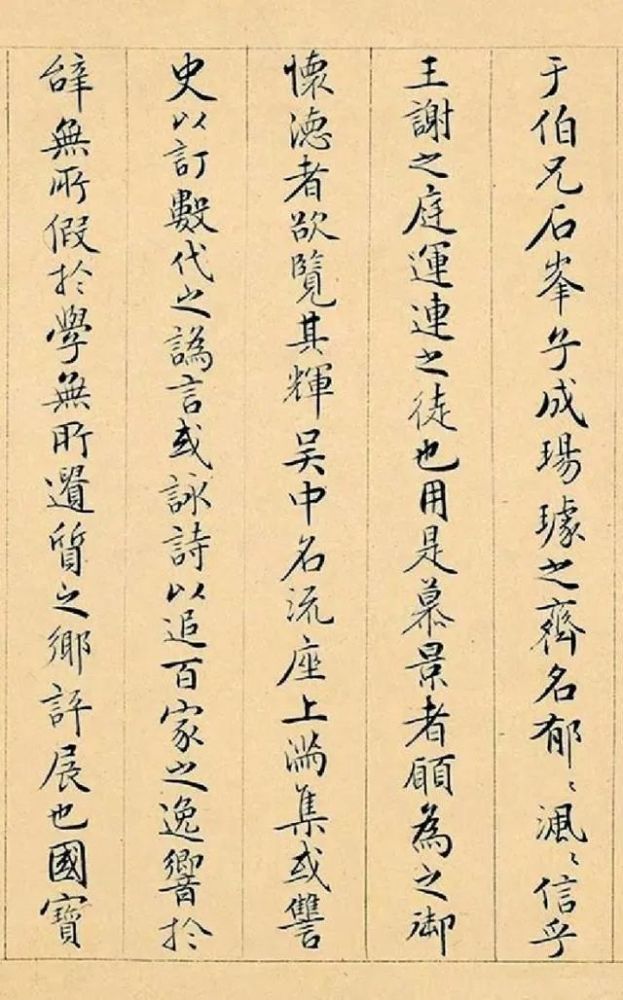 于伯兄石峯乎成瑒璩之齊名郁〻渢〻信乎
王謝之庭運連之徒也用是慕景者願為之御
懷德者欲覽其輝吳中名流座上滿集或讐
史以訂數代之譌言或詠詩以追百家之逸響於
辝無所假於學無所遺質之鄉評展也國寶